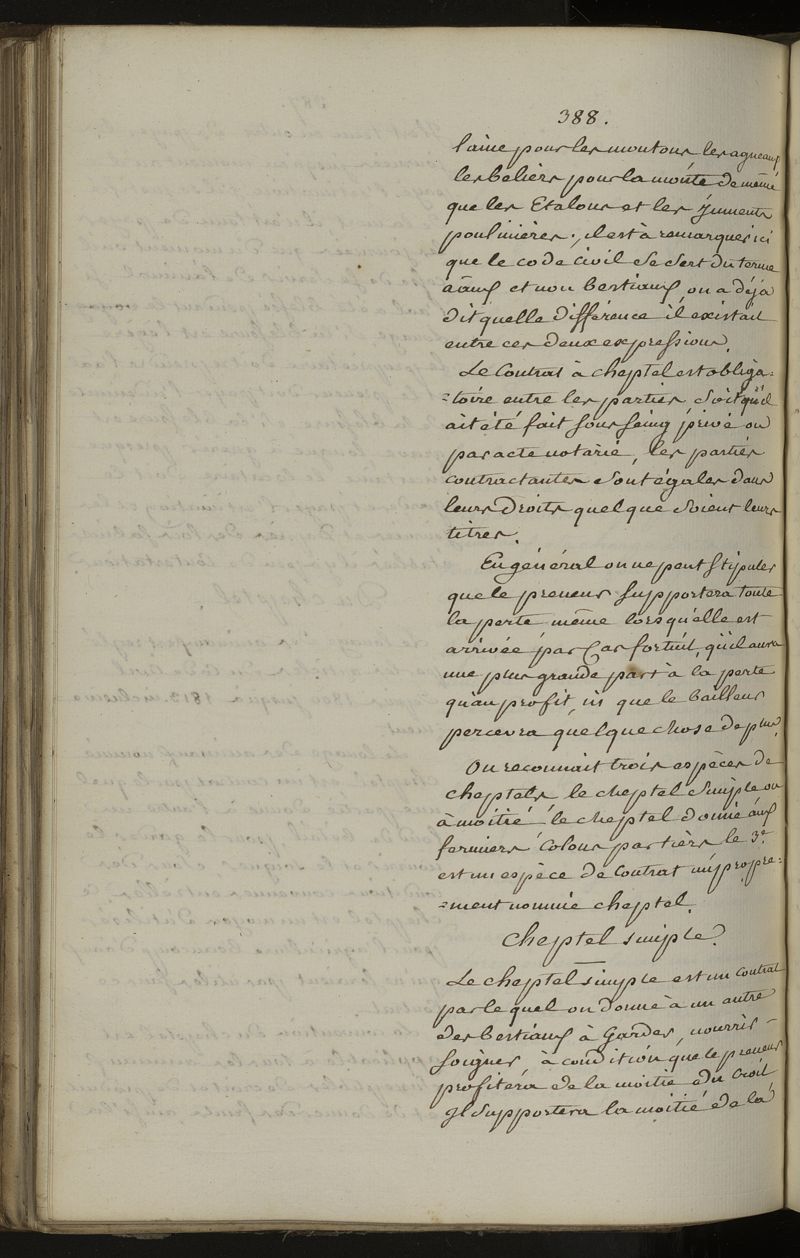 388.
laine pour les moutons les agneaux
les beliers pour la monte de même
que les Etalons et les Juments
poulinières, il est à remarquer ici
que le code civil se sert du terme
et non bestiaux, on a déjà
dit quelle différence il existait
entre ces deux expressions.
Le Contrat à cheptel est obliga=
=toire entre les parties, soit qu'il
ait été fait sous seing privé ou
par acte notarié, les parties
contractantes sont égales dans
leurs droits quelque soient leurs
titres.
En général on ne peut stipuler
que le preneur supportera toute
la perte même lorsqu'elle est
arrivée par Cas fortuit, qu'il aura
une plus grande part à la perte
qu'au profit, ni que le bailleur
percevra quelque chose de plus.
On reconnait trois espèces de
cheptels, le cheptel simple ou
à moitié, le cheptel donné aux
fermiers Colons partièrs le 3e
est un espèce de Contrat impropre=
=ment nommé cheptel.
Cheptel simple.
Le cheptel simple est un contrat
par le quel on donne à un autre
des bestiaux à Garder, nourrir -
soigner, à condition que le preneur
profitera de la moitié du croit,
Il supportera la moitié de la